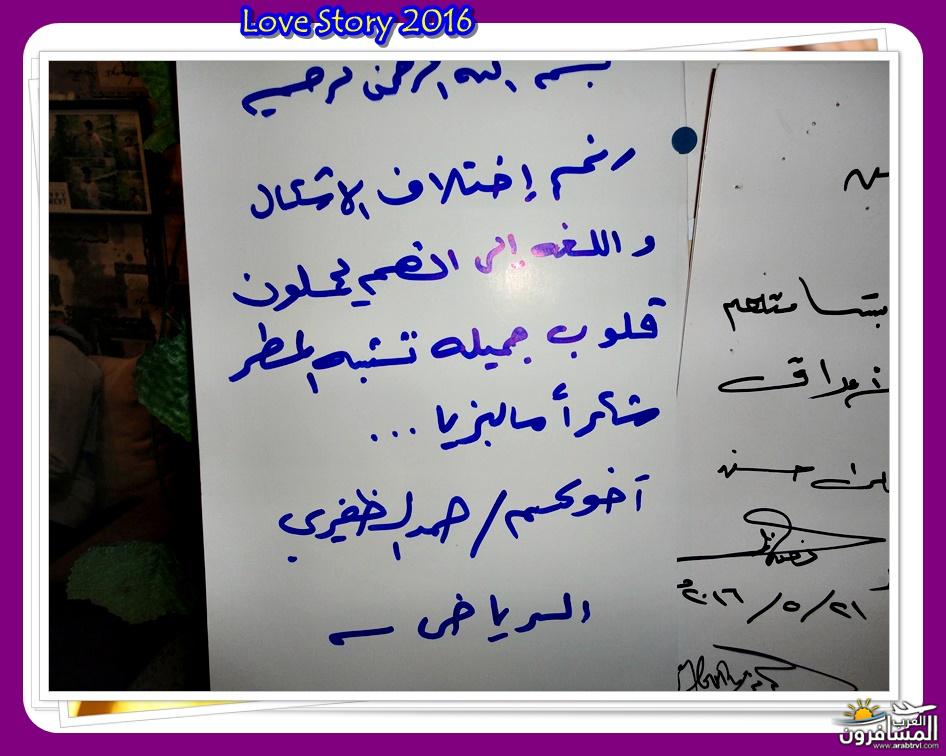 Love Story 2016
بسم الله الرحمن لرحيم
رغم إختلاف الاشكال
و اللغه إلى انهم يحملون
قلوب جميله تشبه المطر
شكراً ماليزيا ...
آخوكم / حمد الظفيري
الرياض
ابتسامتهم
لن حسنه
٢٠١٦ / ٥ / ٢١
العرب
المسافرون
www.arabtrvl.com